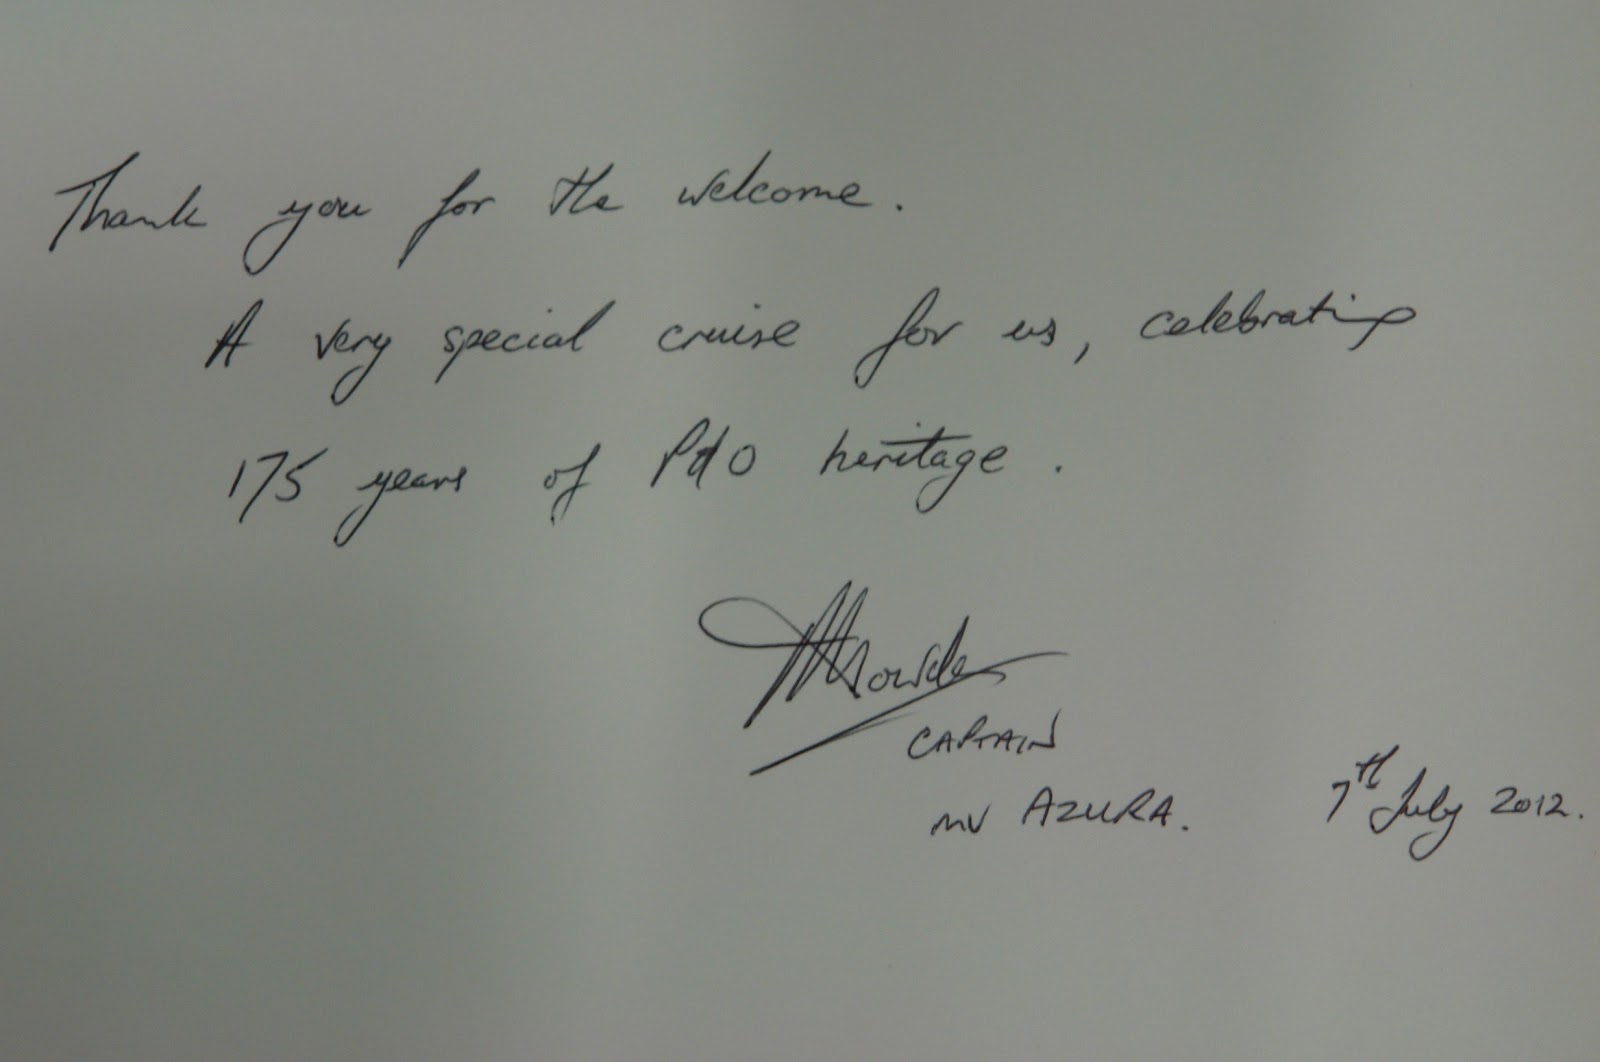 Thank you for the welcome.
A very special cruise for us, celebrating
175 years of P&O heritage.
CAPTAIN
MV AZURA.
7th July 2012.